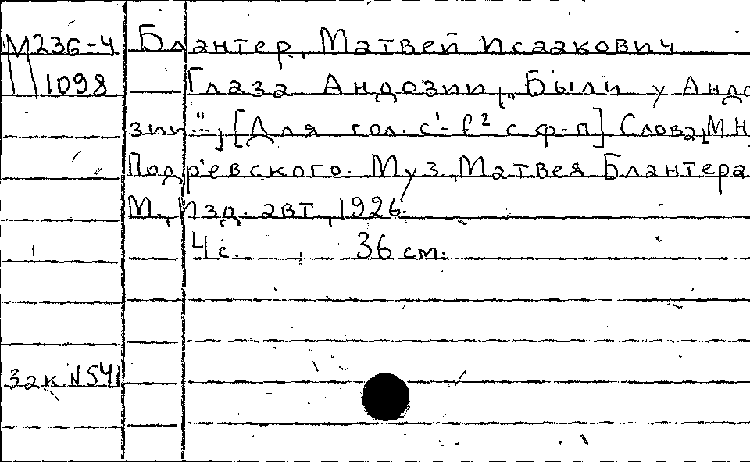 М236-4 Блантер, Матвей Исаакович
1098 Глаза Андозии, „Были у Андо
зии“, [Для гол. c¹-l² с ф-п] Слова М.Н
Подревского. Муз. Матвея Блантера
М., Изд. авт, 1926
4 с. 36 см.
Зак. N541